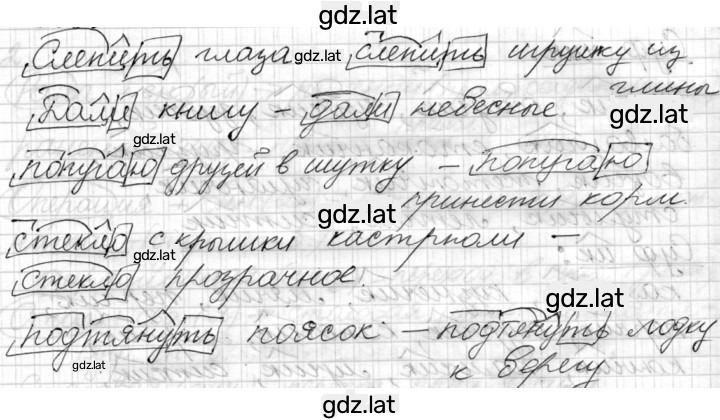 gdz.lat
Слепить глаза - слепить игрушку из
глины
gdz.lat
Дали книгу - дали небесные.
gdz.lat
попугаю друзей в шутку - попугаю
принести корм.
gdz.lat
стекло с крышки кастрюли -
gdz.lat
стекло прозрачное.
gdz.lat
подтянуть поясок - подтянуть лодку
gdz.lat
к берегу
gdz.lat